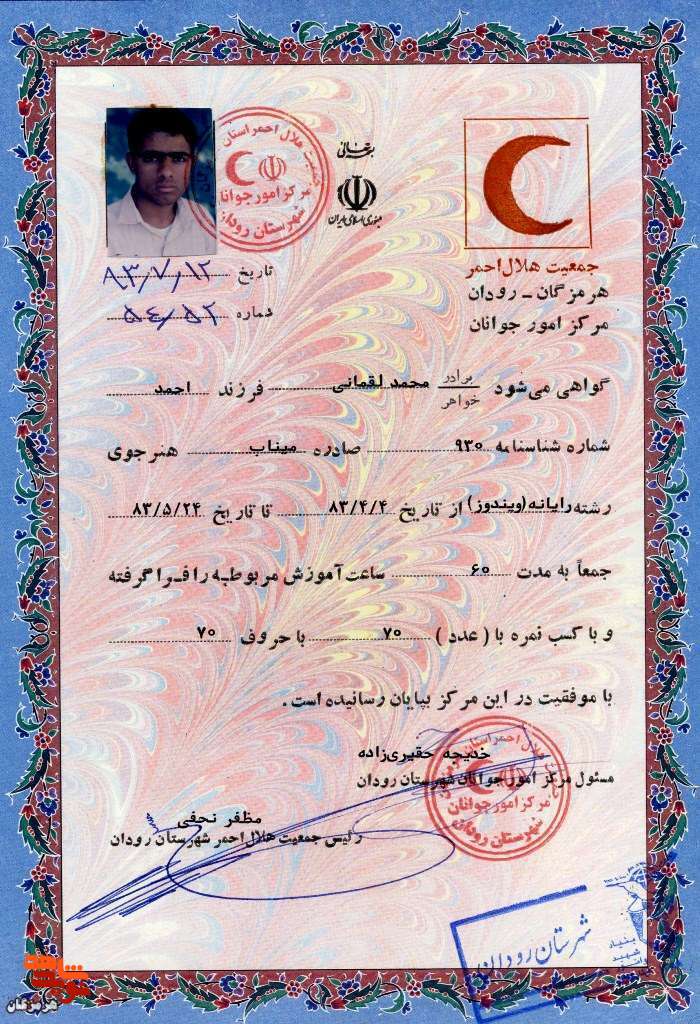 بسمه تعالی
جمهوری اسلامی ایران
جمعیت هلال احمر
هرمزگان - رودان
مرکز امور جوانان
جمعیت هلال احمر استان
مرکز امور جوانان
شهرستان رودان
تاریخ ۸۳/۷/۱۲
شماره ۵۴/۵۲
گواهی می‌شود برادر خواهر محمد لقمانی فرزند احمد
شماره شناسنامه ۹۳۰ صادره میناب هنرجوی
رشته رایانه (ویندوز) از تاریخ ۸۳/۴/۴ تا تاریخ ۸۳/۵/۲۴
جمعاً به مدت ۶۰ ساعت آموزش مربوطه را فرا گرفته
و با کسب نمره با (عدد) ۷۰ با حروف ۷۰
با موفقیت در این مرکز بپایان رسانیده است.
خدیجه حقیری‌زاده
مسئول مرکز امور جوانان شهرستان رودان
جمعیت هلال احمر استان
مرکز امور جوانان
شهرستان رودان
مظفر نجفی
رئیس جمعیت هلال احمر شهرستان رودان
بنیاد شهید
شهرستان رودان
هرمزگان